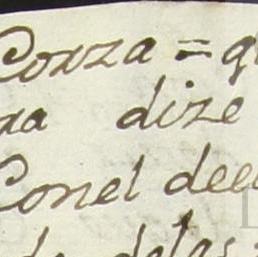 Corza = q
ra dize
Conel dee
de delas